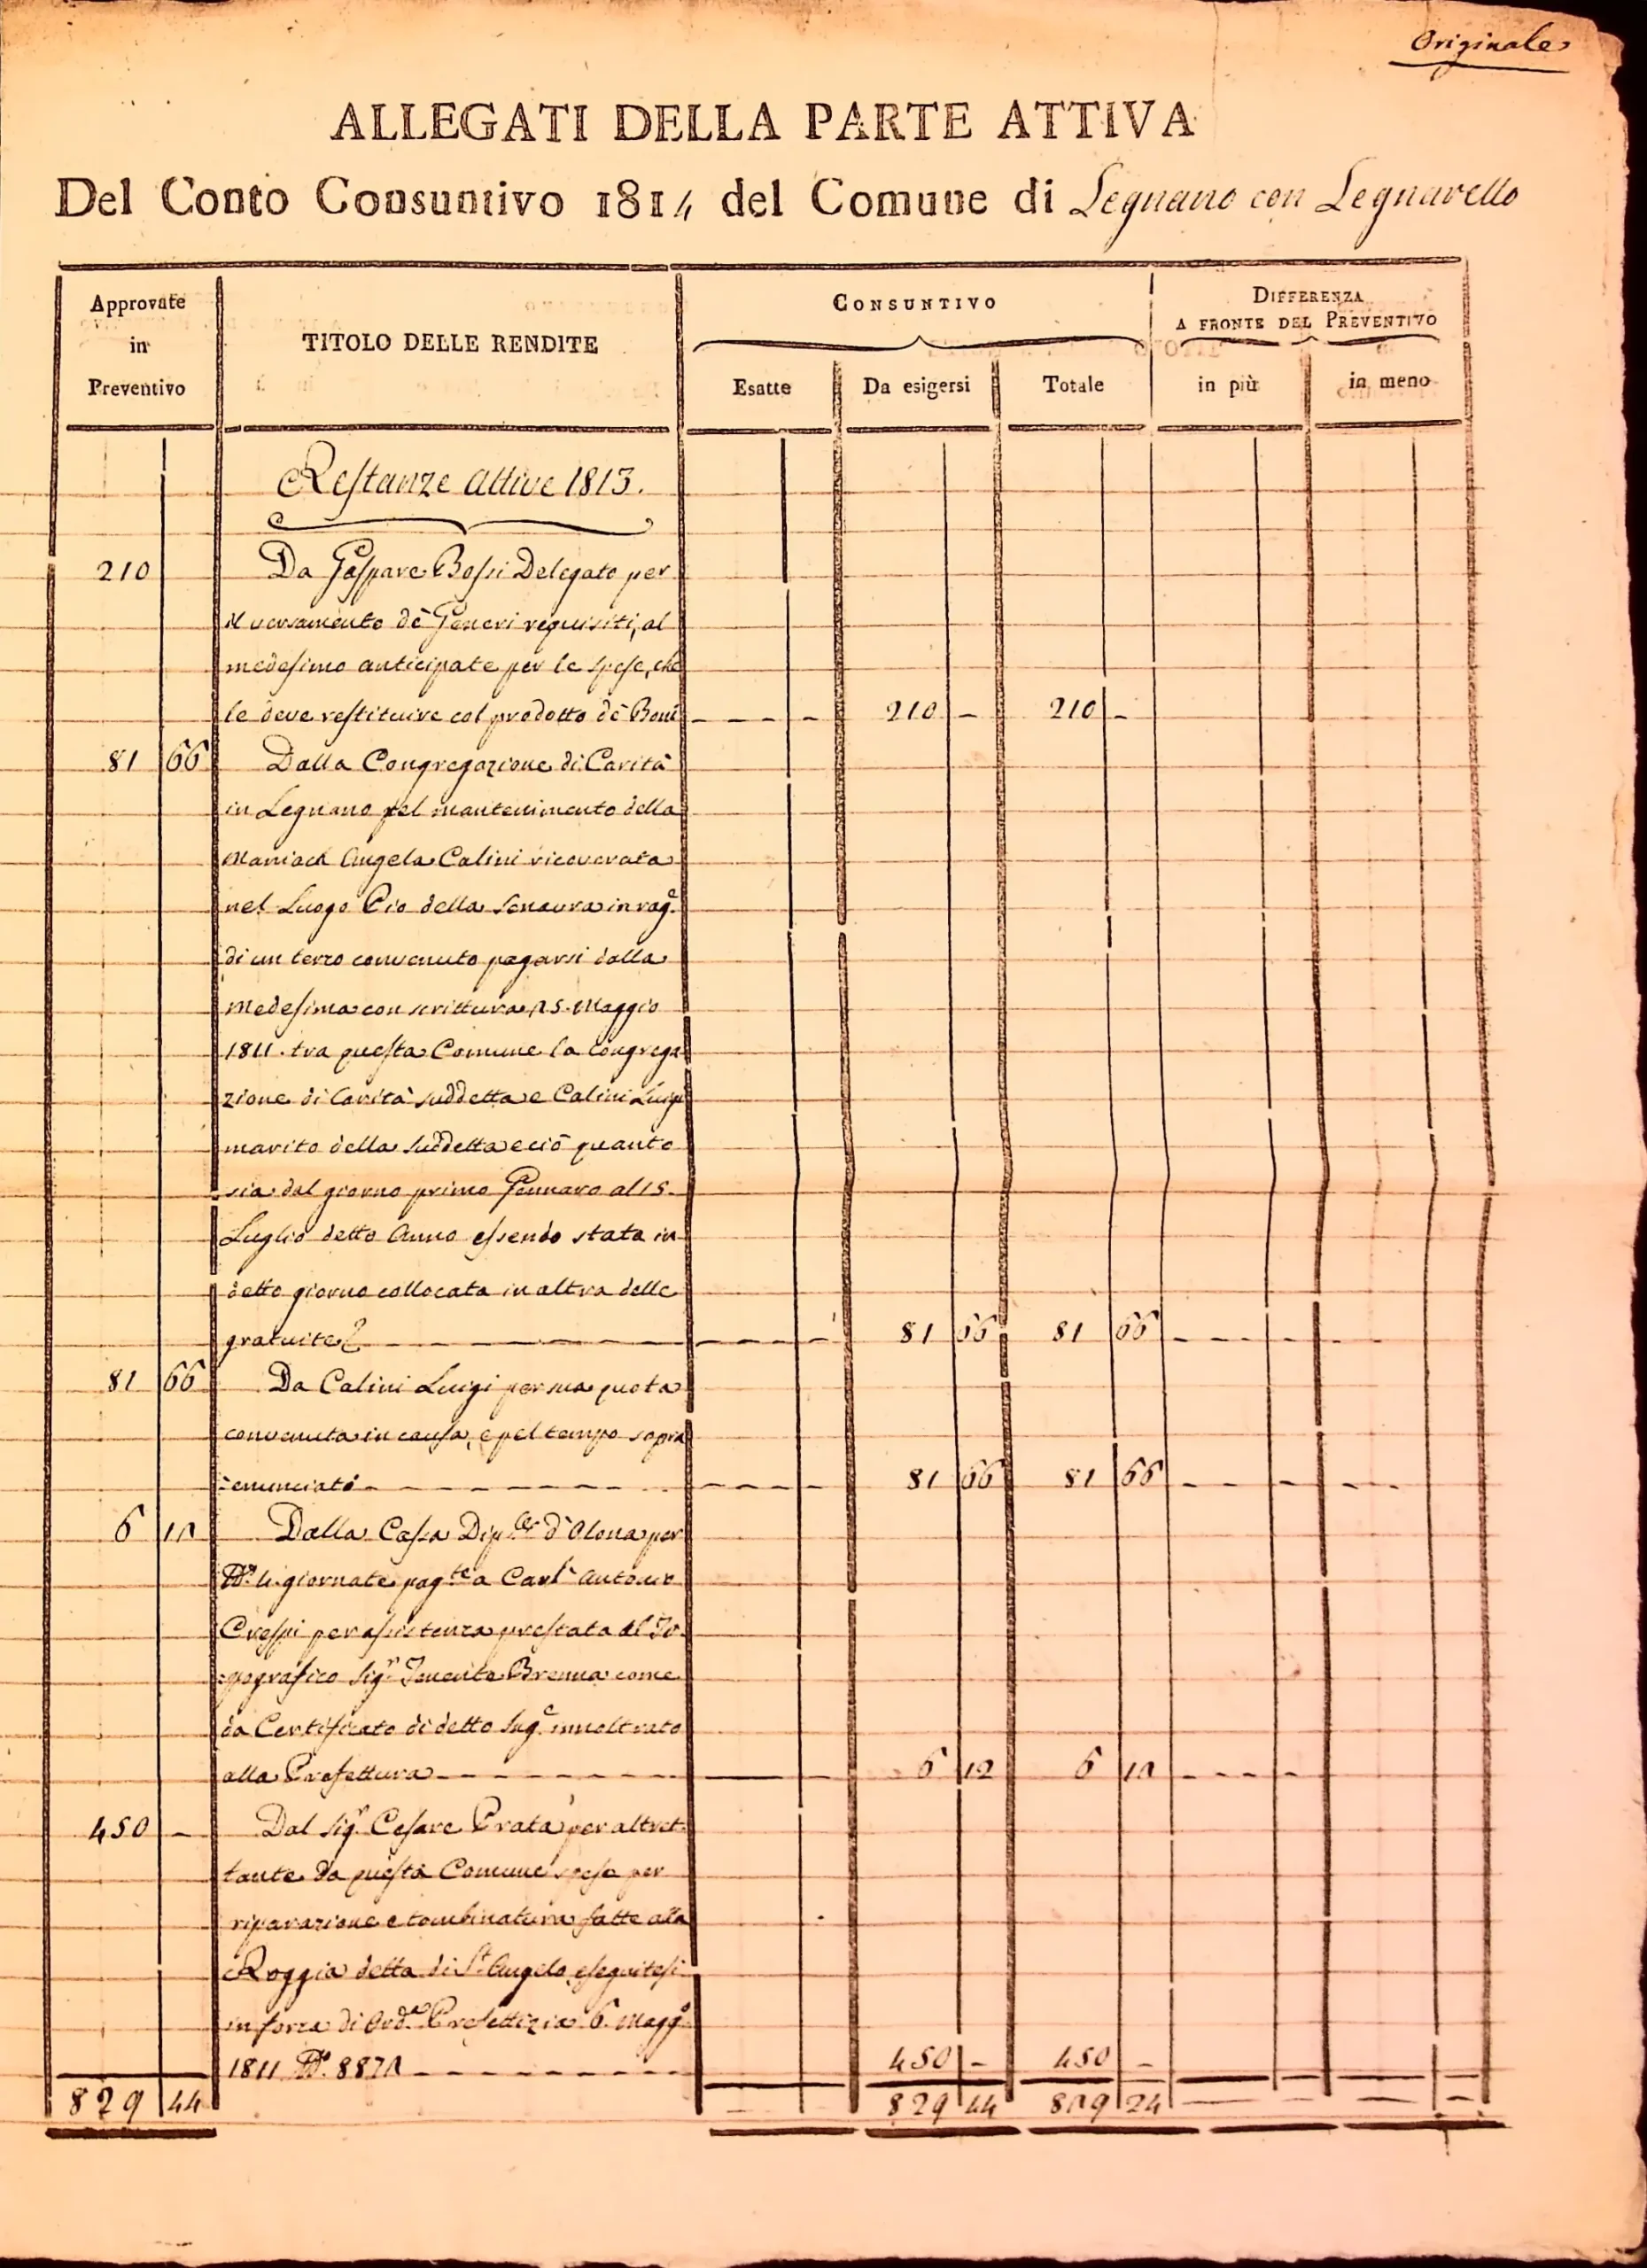 Originale
ALLEGATI DELLA PARTE ATTIVA
Del Conto Consuntivo 1814 del Comune di Legnano con Legnarello
Approvate in Preventivo
TITOLO DELLE RENDITE
CONSUNTIVO
DIFFERENZA A FRONTE DEL PREVENTIVO
Esatte Da esigersi Totale in più in meno
Restanze Attive 1813.
210 Da Gaspare Bossi Delegato per
il versamento de Generi requisiti, al
medesimo anticipate per le spese, che
le deve restituire col prodotto de Boni - - - - 210 - 210 -
81 66 Dalla Congregazione di Carità
in Legnano pel mantenimento della
Maniaca Angela Calini ricoverata
nel Luogo Pio della Senavra in rag.e
di un terzo convenuto pagarsi dalla
Medesima con scrittura 15. Maggio
1811. tra questa Comune la Congrega
zione di Carità suddetta e Calini Luigi
marito della suddetta e ciò quanto
sia dal giorno primo Gennaro al 15.
Luglio detto Anno essendo stata in
detto giorno collocata in altra delle
gratuite - - - - 81 66 81 66 - - - -
81 66 Da Calini Luigi per sua quota
convenuta in causa, e pel tempo sopra
enunciato - - - - 81 66 81 66 - - - -
6 12 Dalla Cassa Dip.le d'Olona per
N.o 4. giornate pag.te a Carl' Antonio
Crespi per assistenza prestata al To
pografico Sig.r Tenente Brenna come
da Certificato di detto innoltrato
alla Prefettura - - - - 6 12 6 12 - - - -
450 - Dal Sig.r Cesare Prata per altret
tante da questa Comune spese per
riparazione e tombinatura fatte alla
Roggia detta di S.t Angelo eseguitesi
in forza di Ord.e Prefettizia 6. Magg.o
1811 N.o 8872 - - - - 450 - 450 -
829 44 829 44 829 24